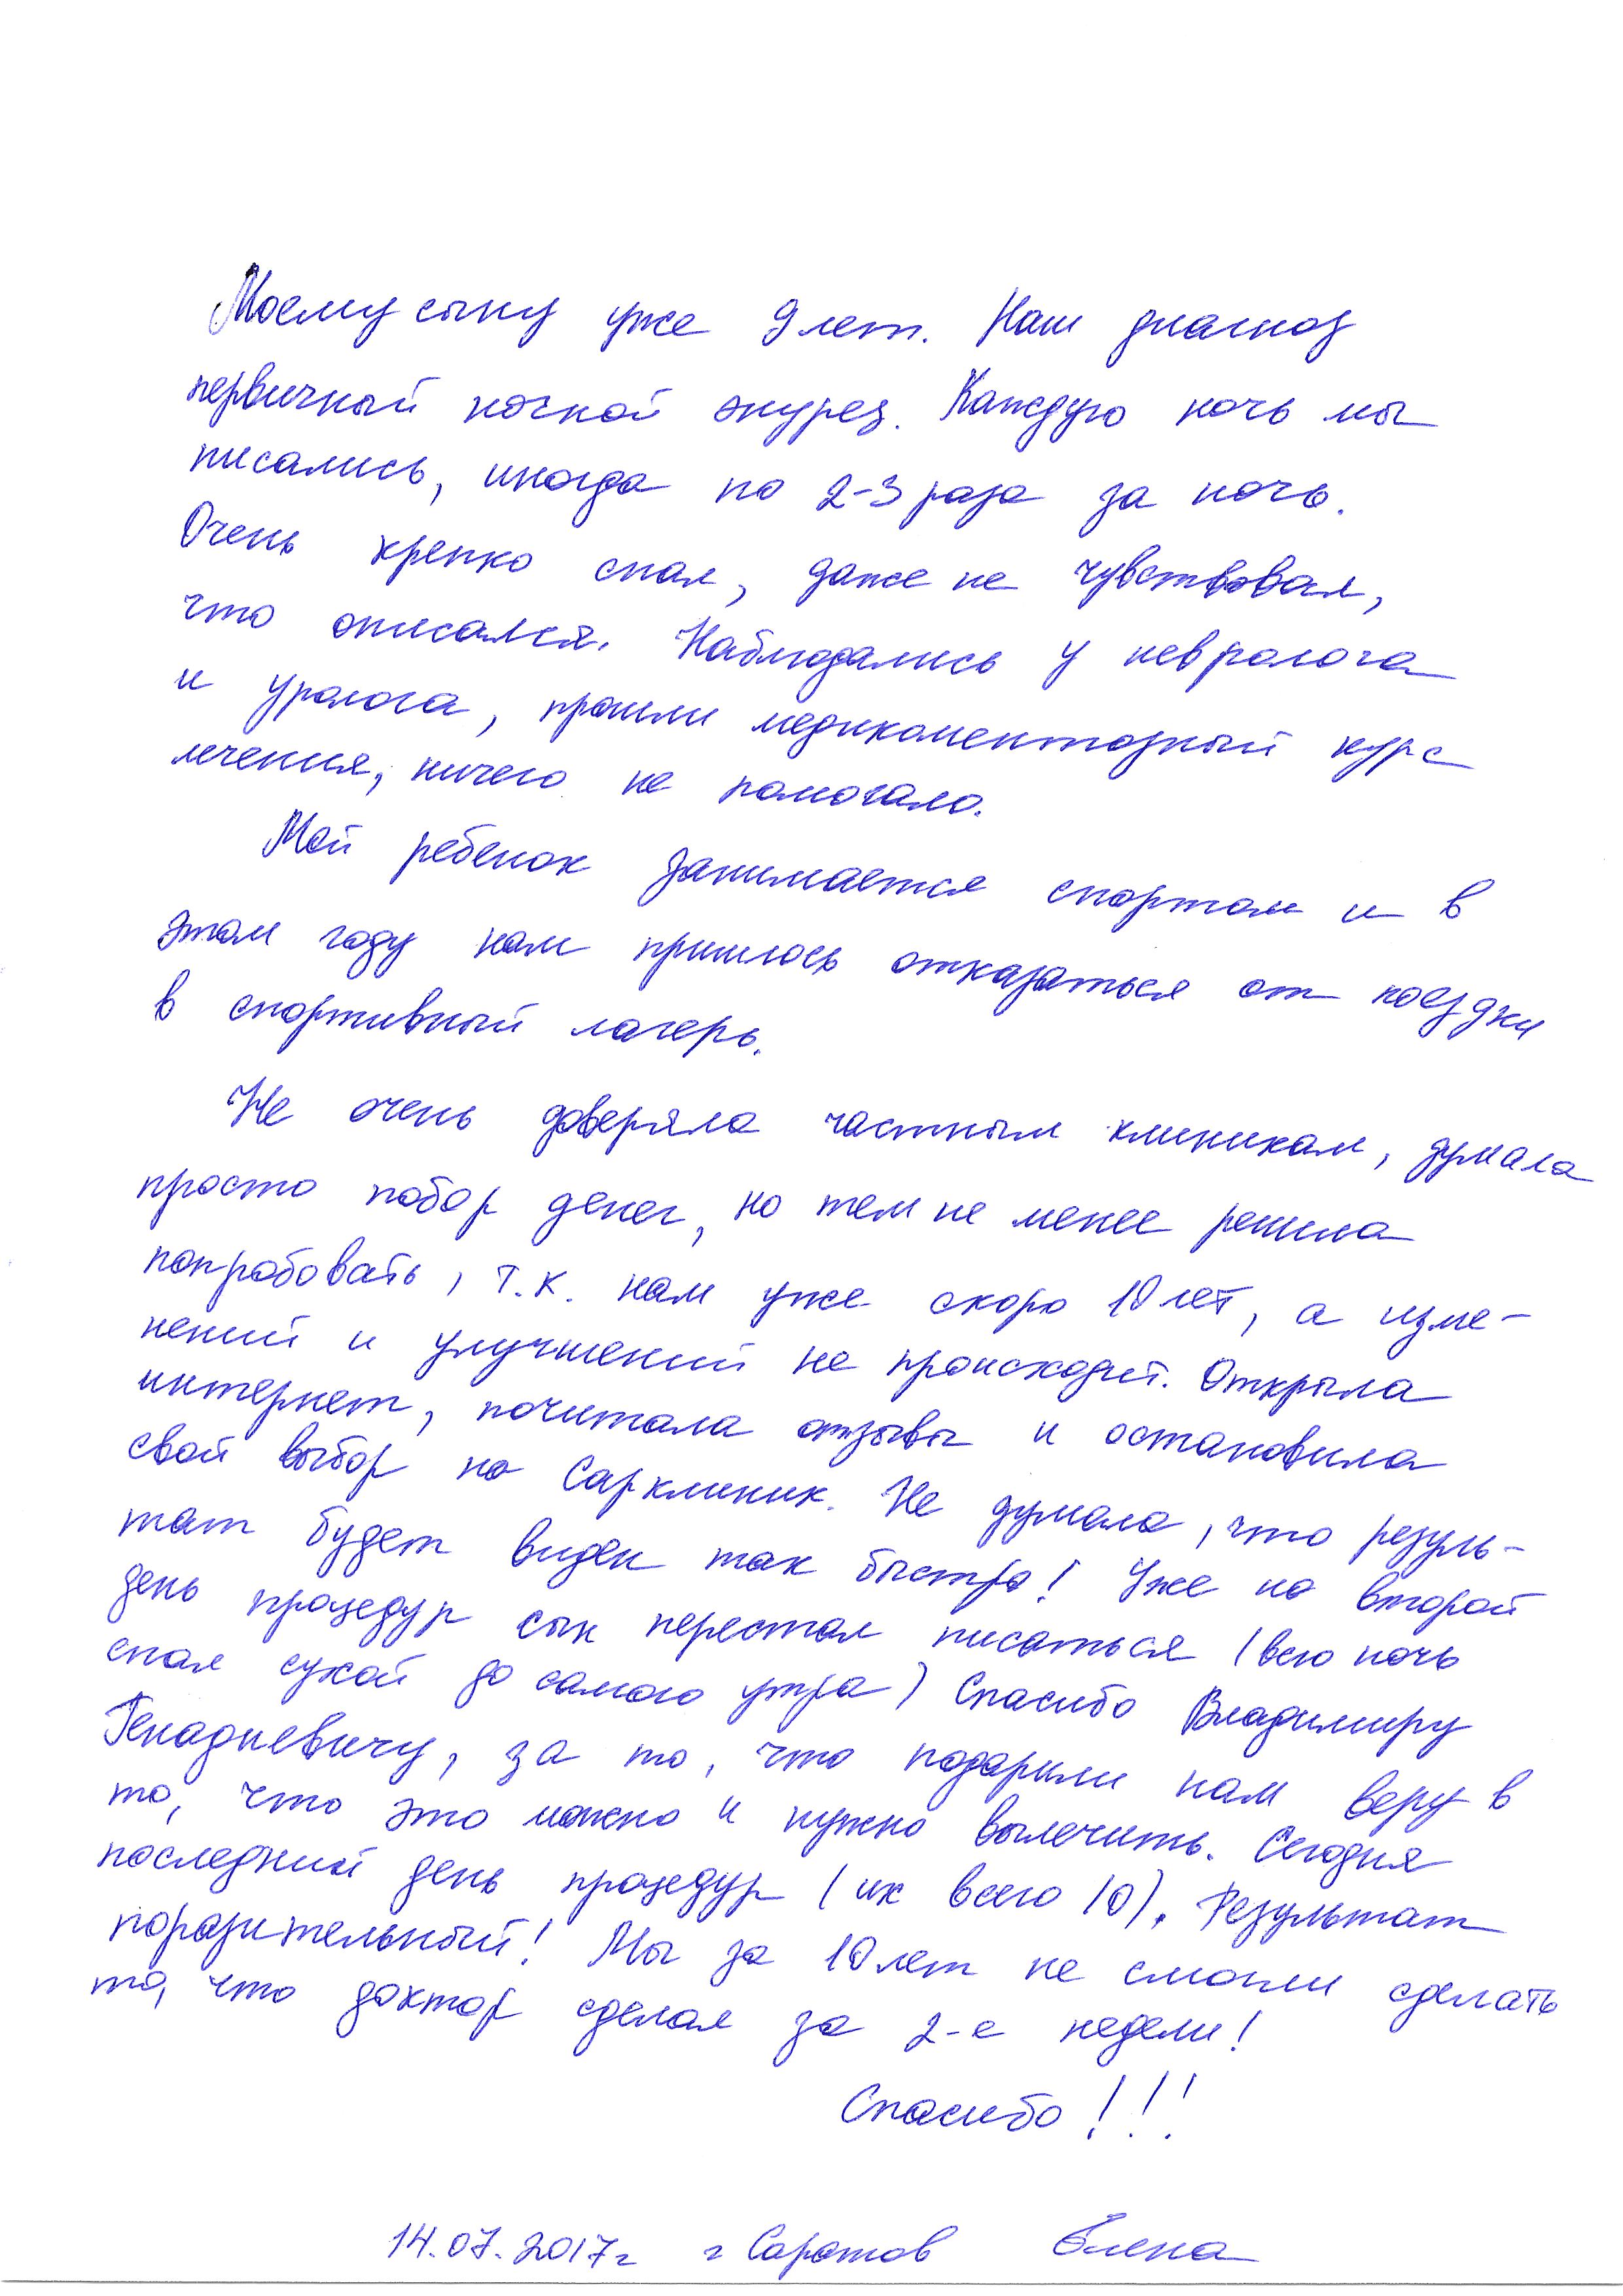 Моему сыну уже 9 лет. Наш диагноз
первичный ночной энурез. Каждую ночь мы
писались, иногда по 2-3 раза за ночь.
Очень крепко спал, даже не чувствовал,
что описался. Наблюдались у невролога
и уролога, прошли медикаментозный курс
лечения, ничего не помогало.
Мой ребенок занимается спортом и в
этом году нам пришлось отказаться от поездки
в спортивный лагерь.
Не очень доверяла частным клиникам, думала
просто побор денег, но тем не менее решила
попробовать, т.к. нам уже скоро 10 лет, а изме-
нений и улучшений не происходит. Открыла
интернет, почитала отзывы и остановила
свой выбор на Сарклиник. Не думала, что резуль-
тат будет виден так быстро! Уже на второй
день процедур сын перестал писаться (всю ночь
спал сухой до самого утра) Спасибо Владимиру
Генадиевичу, за то, что подарили нам веру в
то, что это можно и нужно вылечить. Сегодня
последний день процедур (их всего 10). Результат
поразительный! Мы за 10 лет не смогли сделать
то, что доктор сделал за 2-е недели!
Спасибо!!!
14.07.2017г г Саратов Елена